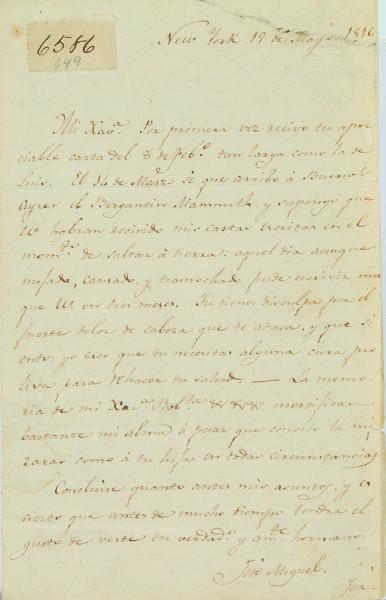 6586
649
New York 17 de Mayo 1816
Mi Xavª. Por primera vez recivo tu apre
ciable carta del 8 de Febº. tan larga como la de
Luis. El 14 de Marzo sé que arribo á Buenos
Ayres el Bergantin Mammuth, y supongo que
V habran recivido mis cartas escritas en el
momtº. de saltar á tierra: aquel dia aunque
mojado, cansado, y trasnochado pude escrivir mas
que V. en tres meses. Tu tienes disculpa por el
fuerte dolor de cabeza que te ataca, y que si
ento; yo creo que tu necesitas alguna cura pro
lixa para rehacer tu salud. — La memo
ria de mi Xavª. mortifica
bastante mi alma á pesar que consi la mi
raras como á tu hija en todas circunstancias
Concluire quanto antes mis asuntos, y es
cierto que antes de mucho tiempo tendra el
gusto de verte tu verdadº. y amte. hermano
José Miguel.